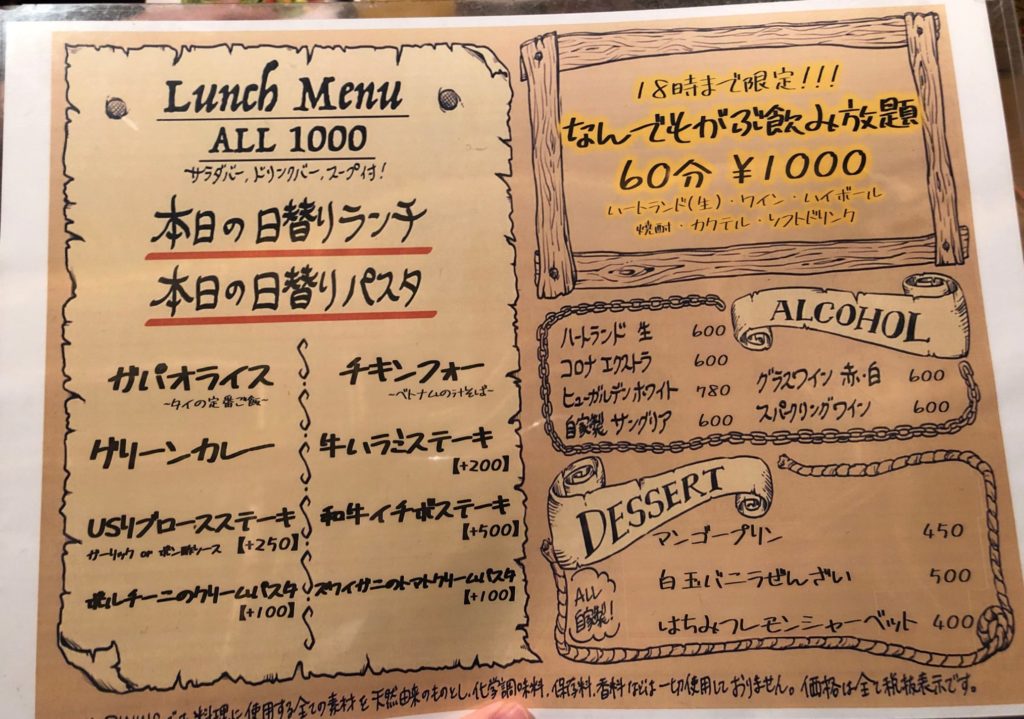 Lunch Menu
ALL 1000
サラダバー、ドリンクバー、スープ付!
本日の日替りランチ
本日の日替りパスタ
ガパオライス
~タイの定番ご飯~
チキンフォー
~ベトナムの汁そば~
グリーンカレー
牛ハラミステーキ
【+200】
USリブロースステーキ
ガーリック or ポン酢ソース 【+250】
和牛イチボステーキ
【+500】
ポルチーニのクリームパスタ
【+100】
ズワイガニのトマトクリームパスタ
【+100】
18時まで限定!!!
なんでもがぶ飲み放題
60分 ¥1000
ハートランド(生)・ワイン・ハイボール
焼酎・カクテル・ソフトドリンク
ALCOHOL
ハートランド 生 600
コロナ エクストラ 600
ヒューガルデンホワイト 780
自家製 サングリア 600
グラスワイン 赤・白 600
スパークリングワイン 600
DESSERT
マンゴープリン 450
白玉バニラぜんざい 500
はちみつレモンシャーベット 400
ALL
自家製!
料理に使用する全ての素材を天然由来のものとし、化学調味料、保存料、香料などは一切使用しておりません。価格は全て税抜表示です。